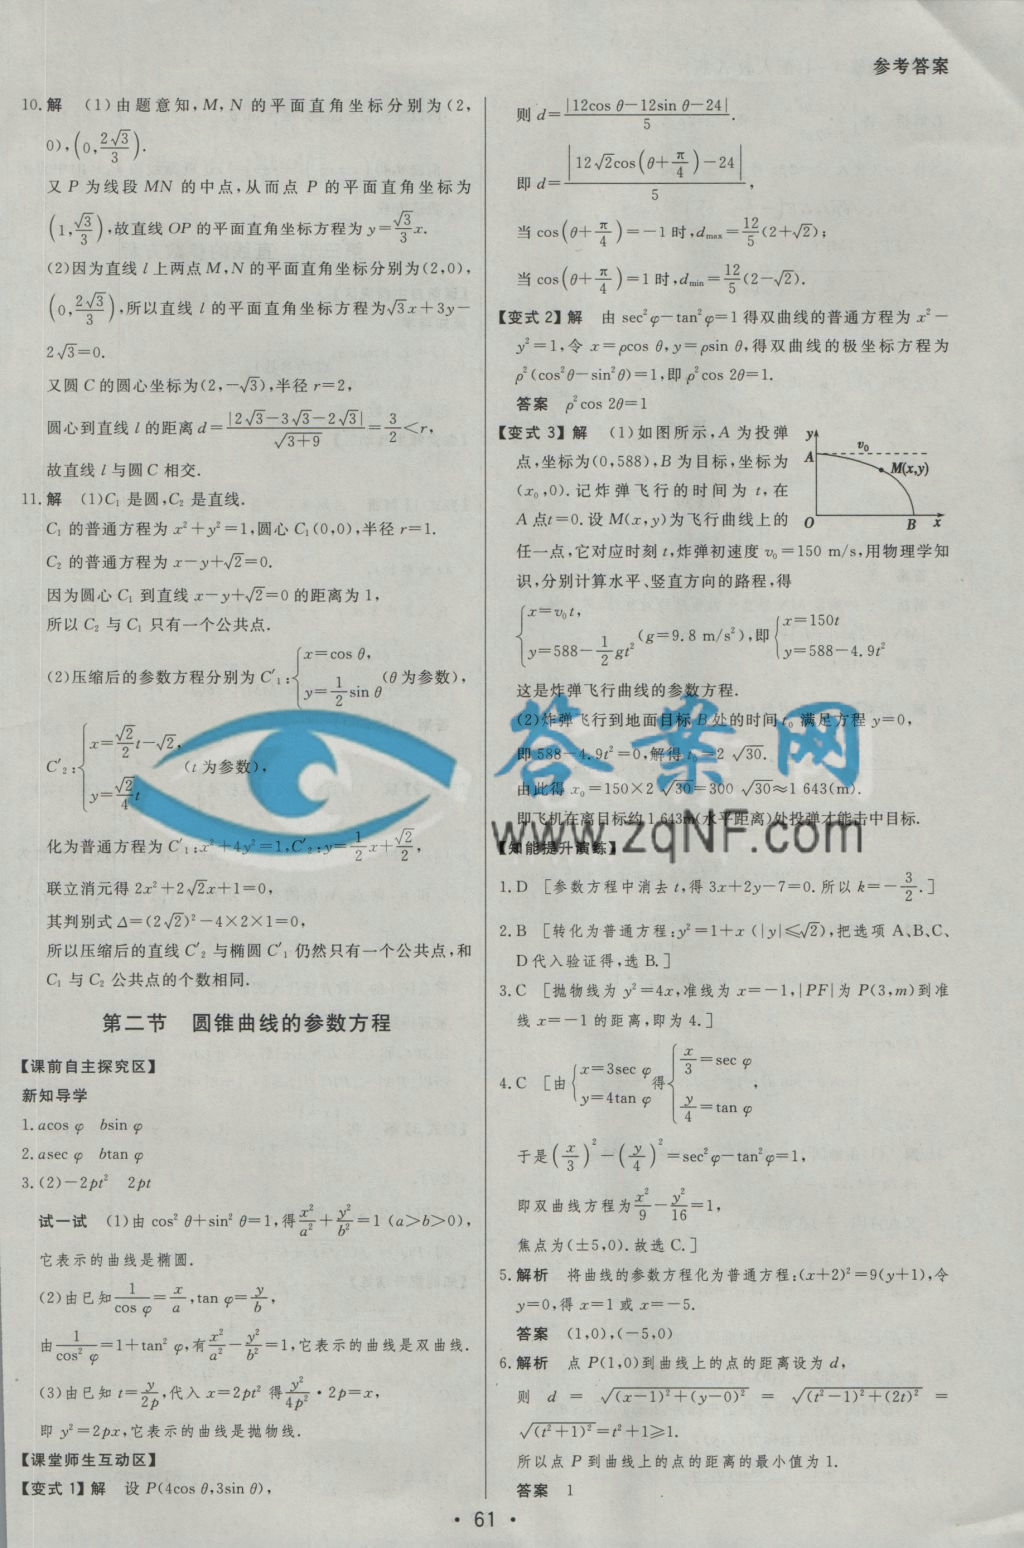 参考答案
10.解 (1)由题意知,M,N的平面直角坐标分别为(2,
0),(0,2√3/3).
又P为线段MN的中点,从而点P的平面直角坐标为
(1,√3/3),故直线OP的平面直角坐标方程为y=√3/3x.
(2)因为直线l上两点M,N的平面直角坐标分别为(2,0),
(0,2√3/3),所以直线l的平面直角坐标方程为√3x+3y-
2√3=0.
又圆C的圆心坐标为(2,-√3),半径r=2,
圆心到直线l的距离d=|2√3-3√3-2√3|/√(3+9)=3/2<r,
故直线l与圆C相交.
11.解 (1)C₁是圆,C₂是直线.
C₁的普通方程为x²+y²=1,圆心C₁(0,0),半径r=1.
C₂的普通方程为x-y+√2=0.
因为圆心C₁到直线x-y+√2=0的距离为1,
所以C₂与C₁只有一个公共点.
(2)压缩后的参数方程分别为C′₁:{x=cos θ, y=1/2sin θ (θ为参数),
C′₂:{x=√2/2t-√2, y=√2/4t (t为参数),
化为普通方程为C′₁:x²+4y²=1,C′₂:y=1/2x+√2/2,
联立消元得2x²+2√2x+1=0,
其判别式Δ=(2√2)²-4×2×1=0,
所以压缩后的直线C′₂与椭圆C′₁仍然只有一个公共点,和
C₁与C₂公共点的个数相同.
第二节 圆锥曲线的参数方程
【课前自主探究区】
新知导学
1.acos φ bsin φ
2.asec φ btan φ
3.(2)-2pt² 2pt
试一试 (1)由cos² θ+sin² θ=1,得x²/a²+y²/b²=1(a>b>0),
它表示的曲线是椭圆.
(2)由已知1/cos φ=x/a,tan φ=y/b,
由1/cos² φ=1+tan² φ,有x²/a²-y²/b²=1,它表示的曲线是双曲线.
(3)由已知t=y/2p,代入x=2pt²得y²/4p²·2p=x,
即y²=2px,它表示的曲线是抛物线.
【课堂师生互动区】
【变式1】解 设P(4cos θ,3sin θ),
则d=|12cos θ-12sin θ-24|/5.
即d=|12√2cos(θ+π/4)-24|/5,
当cos(θ+π/4)=-1时,dmax=12/5(2+√2);
当cos(θ+π/4)=1时,dmin=12/5(2-√2).
【变式2】解 由sec²φ-tan²φ=1得双曲线的普通方程为x²-
y²=1,令x=ρcos θ,y=ρsin θ,得双曲线的极坐标方程为
ρ²(cos²θ-sin²θ)=1,即ρ²cos 2θ=1.
答案 ρ²cos 2θ=1
【变式3】解 (1)如图所示,A为投弹
点,坐标为(0,588),B为目标,坐标为
(x₀,0).记炸弹飞行的时间为t,在
A点t=0.设M(x,y)为飞行曲线上的
y
v₀
A
M(x,y)
O
B
x
任一点,它对应时刻t,炸弹初速度v₀=150 m/s,用物理学知
识,分别计算水平、竖直方向的路程,得
{x=v₀t, y=588-1/2gt² (g=9.8 m/s²),即{x=150t y=588-4.9t²
这是炸弹飞行曲线的参数方程.
(2)炸弹飞行到地面目标B处的时间t₀满足方程y=0,
即588-4.9t²=0,解得t₀=2 √30.
由此得x₀=150×2 √30=300 √30≈1 643(m).
即飞机在离目标约1 643m(水平距离)处投弹才能击中目标.
【知能提升演练】
1.D [参数方程中消去t,得3x+2y-7=0.所以k=-3/2.]
2.B [转化为普通方程:y²=1+x(|y|≤√2),把选项A、B、C、
D代入验证得,选B.]
3.C [抛物线为y²=4x,准线为x=-1,|PF|为P(3,m)到准
线x=-1的距离,即为4.]
4.C [由{x=3sec φ y=4tan φ得{x/3=sec φ y/4=tan φ,
于是(x/3)²-(y/4)²=sec²φ-tan²φ=1,
即双曲线方程为x²/9-y²/16=1,
焦点为(±5,0).故选C.]
5.解析 将曲线的参数方程化为普通方程:(x+2)²=9(y+1),令
y=0,得x=1或x=-5.
答案 (1,0),(-5,0)
6.解析 点P(1,0)到曲线上的点的距离设为d,
则 d = √((x-1)²+(y-0)²) = √((t²-1)²+(2t)²) =
√((t²+1)²)=t²+1≥1.
所以点P到曲线上的点的距离的最小值为1.
答案 1
· 61 ·
答案网
www.zqNF.com